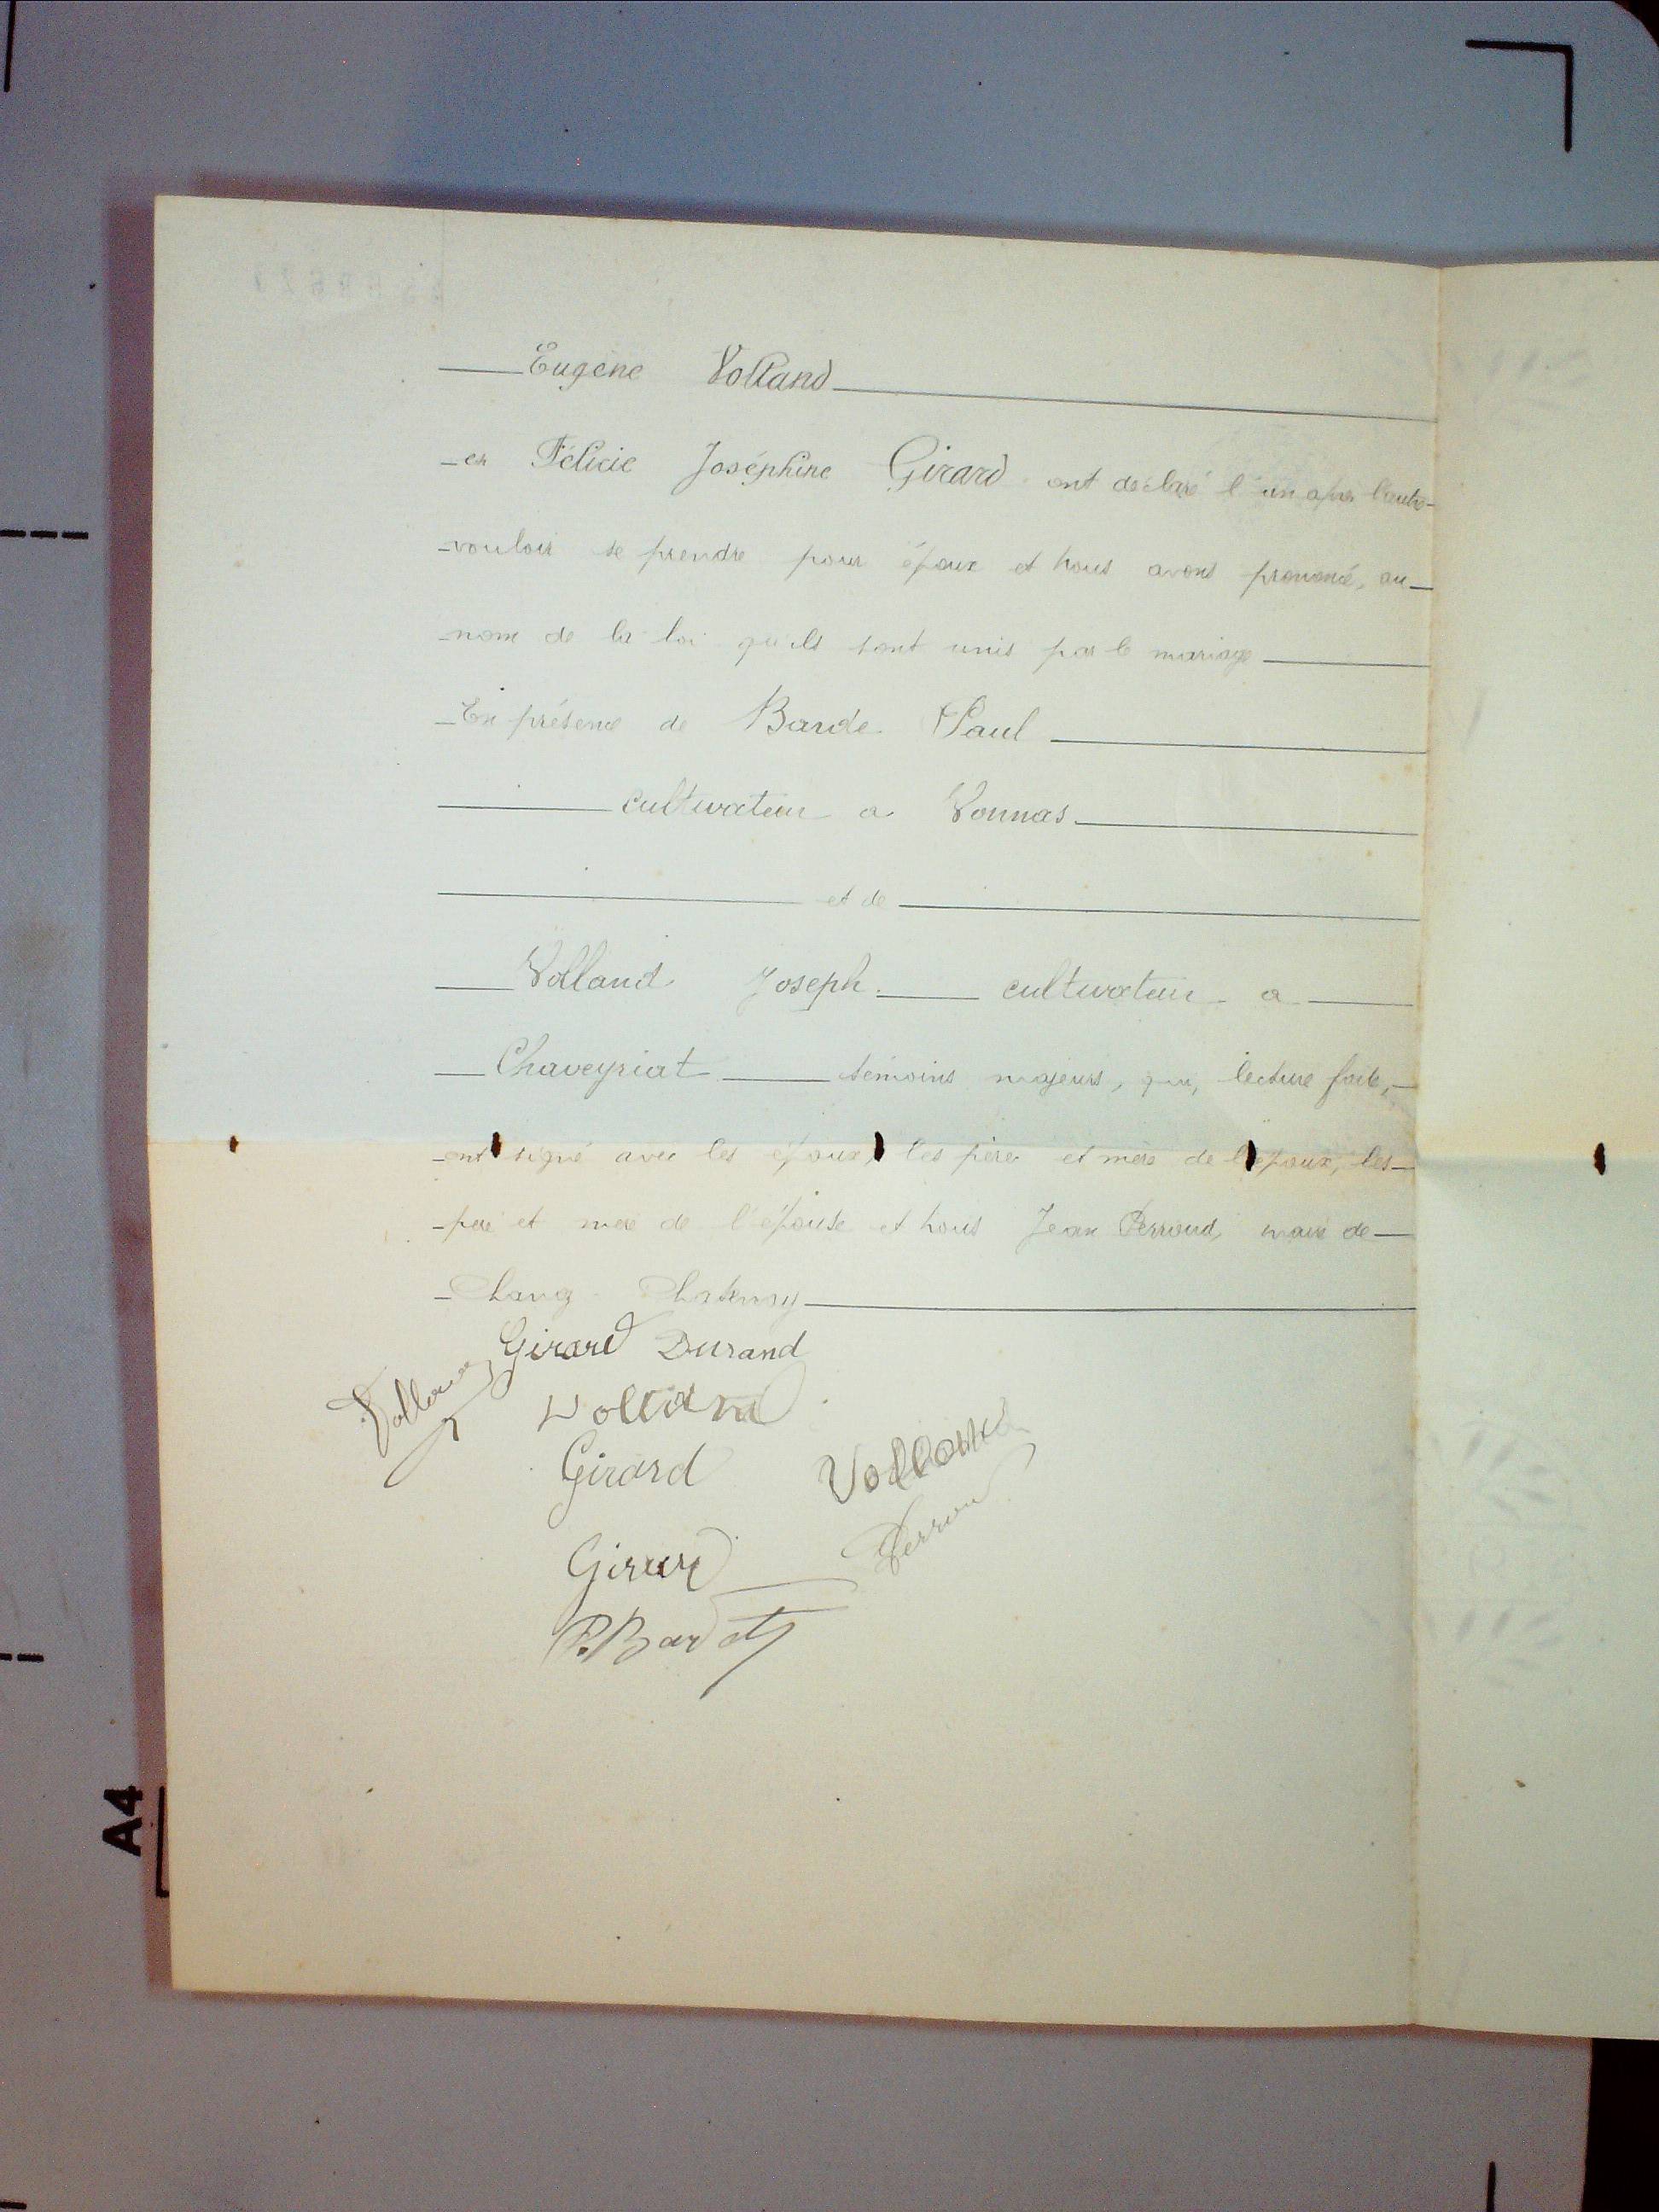 Eugène Volland
et Félicie Joséphine Girard ont déclaré l'un après l'autre
vouloir se prendre pour époux et nous avons prononcé, au
nom de la loi qu'ils sont unis par le mariage
En présence de Barde Paul
cultivateur a Vonnas
et de
Volland Joseph cultivateur a
Chaveyriat témoins majeurs, qui, lecture faite,
ont signé avec les époux, les père et mère de l'époux, les
père et mère de l'épouse et nous Jean Perroud, maire de
Chanoz Chatenay
Girard Durand
Volland
Volland
Girard Volland
Perroud
Girard
P. Bardet
A4